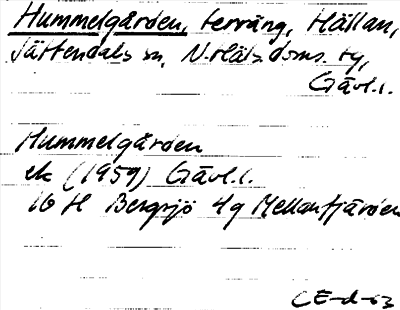 Hummelgården, terräng, Hällan,
Jättendals sn, N. Häls. doms. tg,
Gävl. l.
Hummelgården
ek (1959) Gävl. l.
16 H Bergsjö 4g Mellanfjärden
CE-d-63